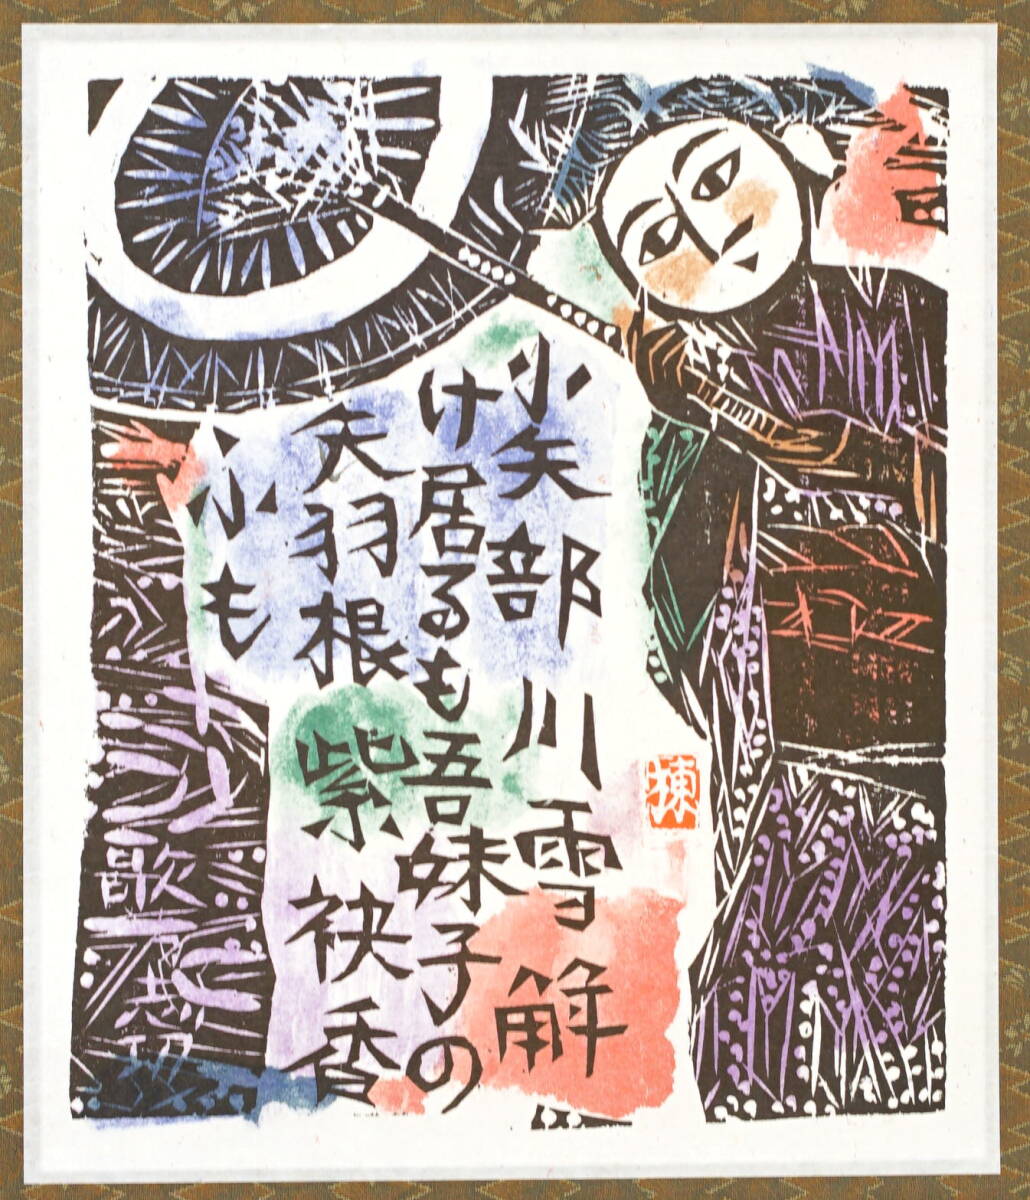 小矢部川雪解
け居るも吾妹子の
矢羽根紫袂香
ふも
棟
歌